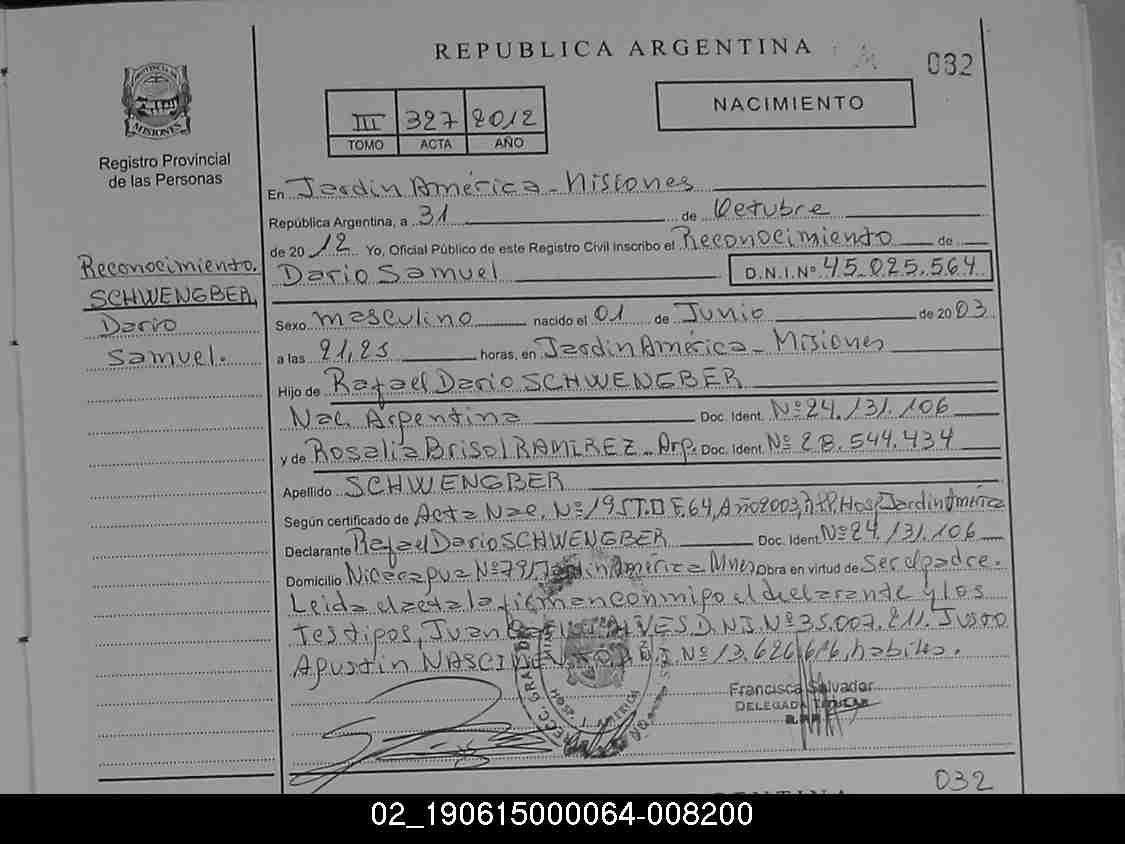 REPUBLICA ARGENTINA
032
PROVINCIA DE
MISIONES
Registro Provincial
de las Personas
III 327 2012
TOMO ACTA AÑO
NACIMIENTO
En Jardín América - Misiones
República Argentina, a 31 de Octubre
de 2012 Yo, Oficial Público de este Registro Civil inscribo el Reconocimiento de
Dario Samuel D.N.I.Nº 45.025.564
Reconocimiento.
SCHWENGBER,
Dario
Samuel.
Sexo masculino nacido el 01 de Junio de 2003
a las 21,25 horas, en Jardín América - Misiones
Hijo de Rafael Dario SCHWENGBER
Nac. Argentina Doc. Ident. Nº 24.131.106
y de Rosalia Brisol RAMIREZ - Arg. Doc. Ident. Nº 28.544.434
Apellido SCHWENGBER
Según certificado de Acta Nac. Nº 195 T. II F. 64, Año 2003, Hosp. Jardín América
Declarante Rafael Dario SCHWENGBER Doc. Ident. Nº 24.131.106
Domicilio Nicaragua Nº 791 Jardín América Mnes Obra en virtud de Ser el padre.
Leida el acta la firman conmigo el declarante y los
testigos, Juan ALVES D.N.I. Nº 35.007.211. Justo
Agustin D.N.I. Nº 13.626.616, habiles.
Francisca Salvador
DELEGADA TITULAR
032
02_190615000064-008200